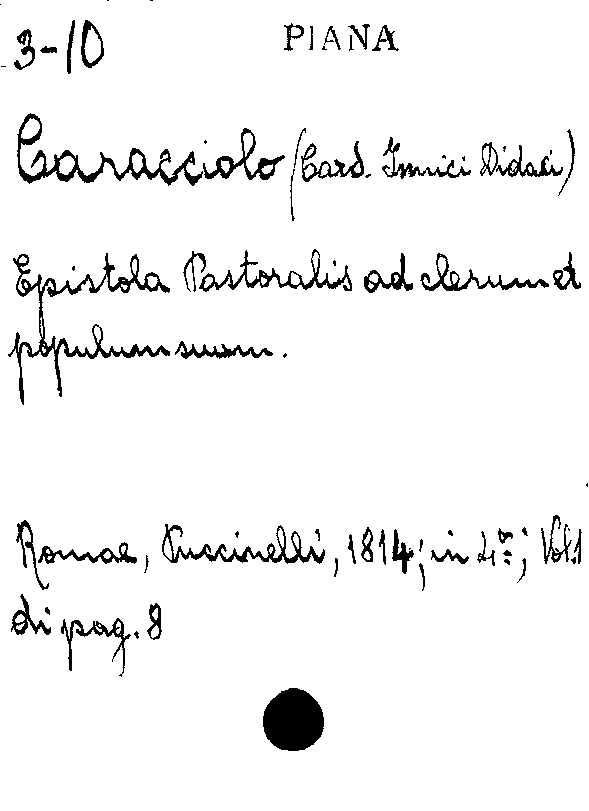 3-10 PIANA
Caracciolo (Card. Innici Didaci)
Epistola Pastoralis ad clerum et
populum suum.
Romae, Puccinelli, 1814; in 4º; Vol. 1
di pag. 8